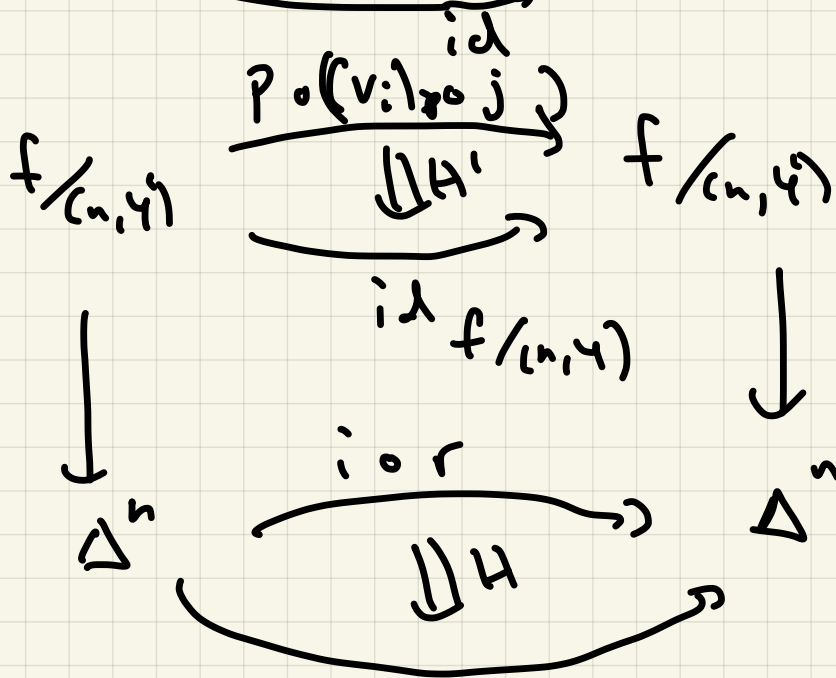 id
p∘((v_i)_*∘j)
f/(n,y) ⇓H' f/(n,y)
id f/(n,y)
i∘r
Δ^n ⇓H Δ^n